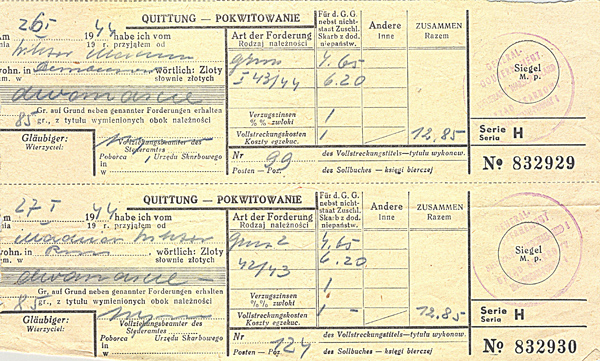 QUITTUNG — POKWITOWANIE
Am 26 I 1944 habe ich vom
dnia 19 r. przyjąłem od
wohn. in wörtlich: Zloty
zam. w słownie złotych
dwanaście
85 Gr. auf Grund neben genannter Forderungen erhalten
gr., z tytułu wymienionych obok należności
Gläubiger: Vollziehungsbeamter des
Wierzyciel: Steueramtes
Poborca Urzędu Skarbowego
Art der Forderung
Rodzaj należności
I 43/44
Verzugszinsen
%-% zwłoki
Vollstreckungskosten
Koszty egzekuc.
Für d. G. G.
nebst nicht-
staat Zuschl.
Skarb z dod.
niepaństw.
4.65
6.20
1
1
Andere
Inne
ZUSAMMEN
Razem
12.85
Nr 99 des Vollstreckungstitels—tytułu wykonaw.
Posten — Poz. des Sollbuches — księgi bierczej
Siegel
M. p.
Serie H
Seria
№ 832929
QUITTUNG — POKWITOWANIE
Am 27 I 1944 habe ich vom
19 r. przyjąłem od
Wiktor
wohn. in wörtlich: Zloty
zam. w słownie złotych
dwanaście
85 Gr. auf Grund neben genannter Forderungen erhalten
gr., z tytułu wymienionych obok należności
Gläubiger: Vollziehungsbeamter des
Wierzyciel: Steueramtes
Poborca Urzędu Skarbowego
Art der Forderung
Rodzaj należności
42/43
Verzugszinsen
%% zwłoki
Vollstreckungskosten
Koszty egzekuc.
Für d. G. G.
nebst nicht-
staat Zuschl.
Skarb z dod.
niepaństw.
4.65
6.20
1
1
Andere
Inne
—
ZUSAMMEN
Razem
12.85
Nr 124 des Vollstreckungstitels—tytułu wykonaw.
Posten — Poz. des Sollbuches — księgi bierczej
Siegel
M. p.
Serie H
Seria
№ 832930